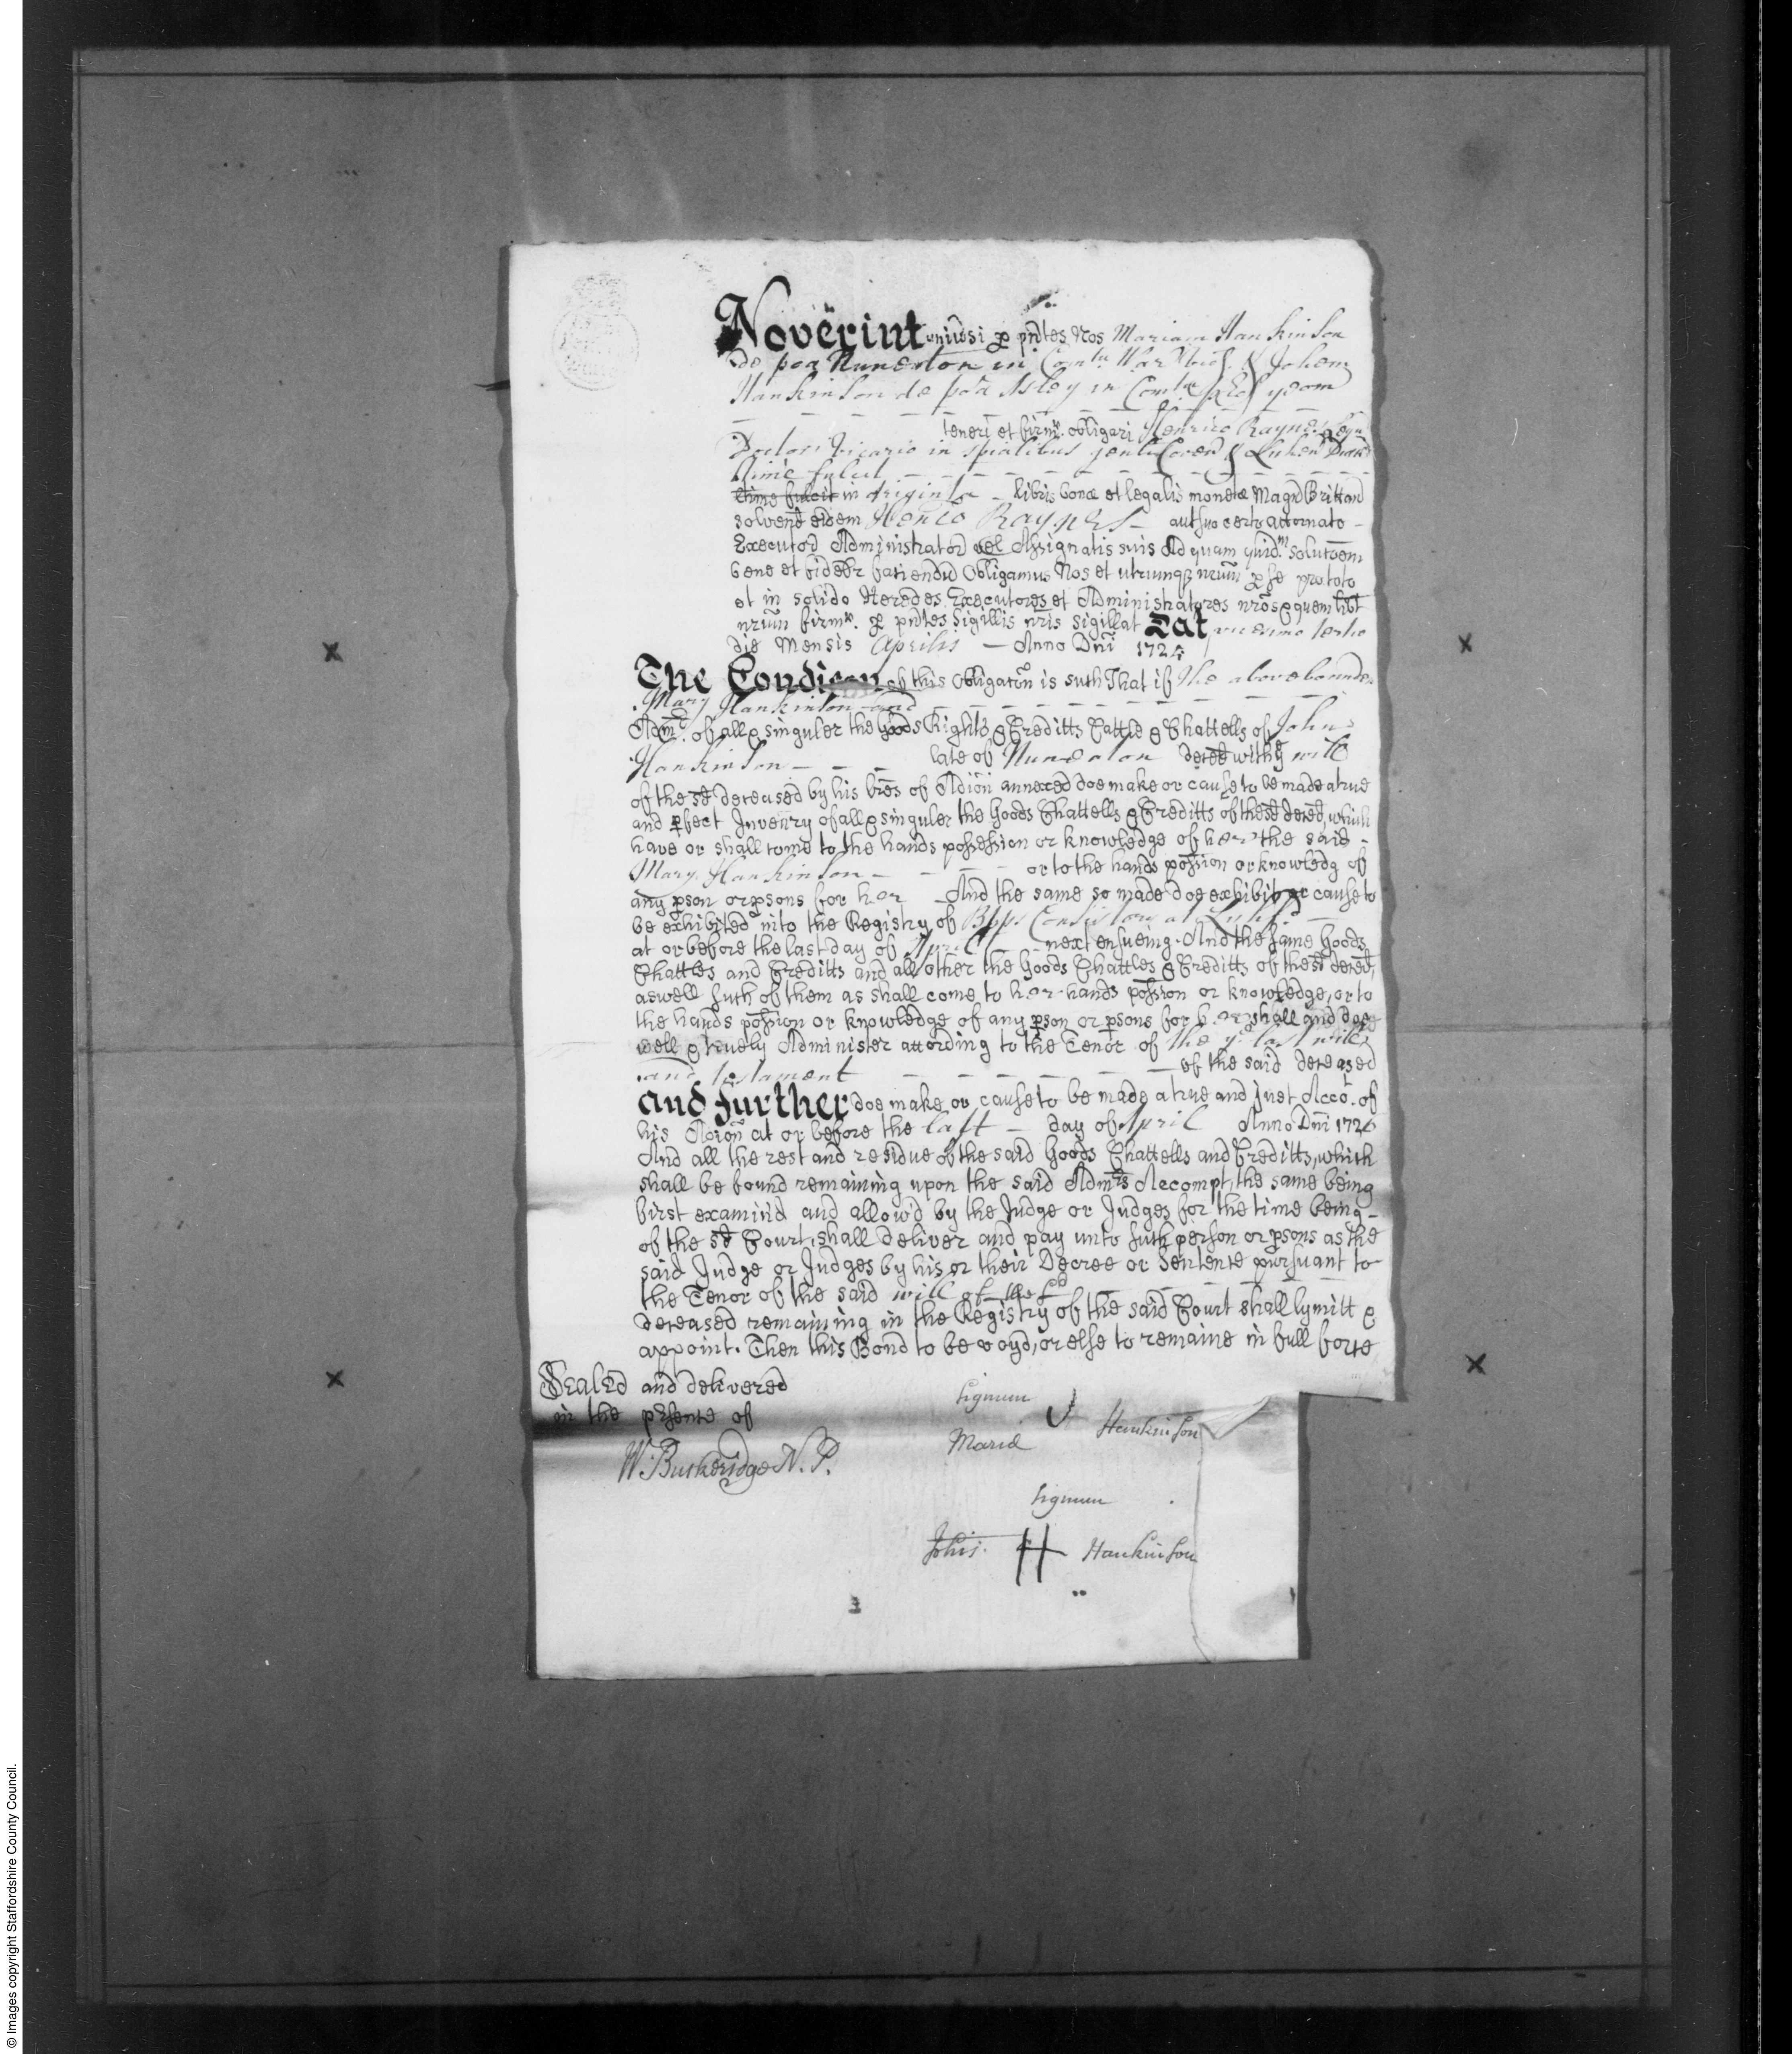 Noverint univsi p pñtes Nos Mariam Hankinson
de poa Nuneaton in Comtu Warr Vid. & Johem
Hankinson de poa Astley in Comtu yeom
teneri et firmr. obligari Henrico Raynes Legu
Doctori Vicario in spialibus genli Coven & Lichen
time fulcit
time fulcit in triginta libris bonæ et legalis monetæ Magñ Brittan
solvend eidem Henco Raynes aut suo certo attornato
Executor Administrator vel Assignatis suis Ad quam quidm solutoem
bene et fidelr faciendu Obligamus Nos et utrumqz nrum p se pro toto
et in solido Heredes Executores et Administratores nrõs & quemlibt
nrum firmr. p pñtes Sigillis nr̃is sigillat Dat vicesimo tertio
die Mensis Aprilis — Anno Dni 1725
The Condicon of this Obligatõn is such That if the abovebounden
Mary Hankinson and
Adm. of all & singuler the Goods Rights & Creditts Cattle & Chattells of John
Hankinson — — — late of Nuneaton deced with ye will
of the sd deceased by his lres of Adiõn annexed doe make or cause to be made a true
and pfect Invenry of all & singuler the Goods Chattells & Creditts of the sd deced, which
have or shall come to the hands possession or knowledge of her the said -
Mary Hankinson — — — or to the hands possion or knowledg of
any pson or psons for her And the same so made doe exhibit or cause to
be exhibited into the Registry of Bpps Consistory at Lichf.
at or before the last day of April next ensueing. And the same Goods
Chattles and Creditts and all other the Goods Chattles & Creditts of the sd deced,
aswell such of them as shall come to her hands possion or knowledge, or to
the hands possion or knowledge of any pson or psons for her shall and doe
well & truely Administer according to the Tenor of the ye last will
and testament — — — of the said deceased
And further doe make or cause to be made a true and just Accot. of
his Adiõn at or before the last — day of April Anno Dni 1726
And all the rest and residue of the said Goods Chattells and Creditts, which
shall be found remaining upon the said Admrs Accompt, the same being
first examin'd and allow'd by the Judge or Judges for the time being -
of the sd Court, shall deliver and pay unto such person or psons as the
said Judge or Judges by his or their Decree or Sentence pursuant to
the Tenor of the said will of the sd
deceased remaining in the Registry of the said Court shall lymitt &
appoint. Then this Bond to be voyd, or else to remaine in full force
Sealed and delivered
in the psence of
W. Buckeridge N. P.
Signum
Mariæ Hankinson
Signum
Johis. H Hankinson
© Images copyright Staffordshire County Council.